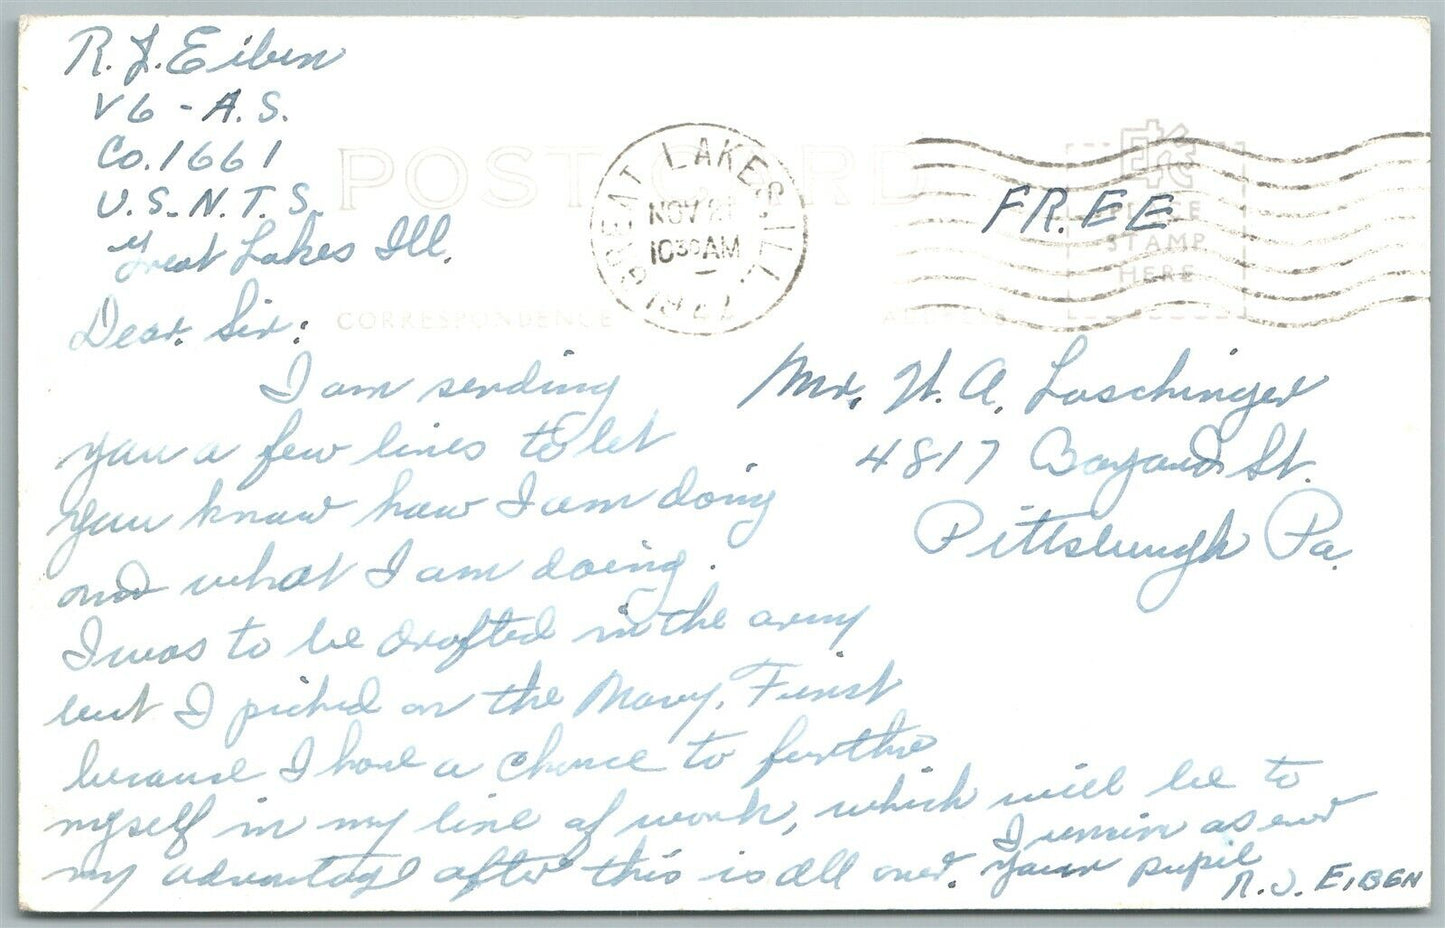 R. J. Eiben
V6 - A.S.
Co. 1661
U.S.N.T.S.
Great Lakes Ill.
POST CARD
GREAT LAKES, ILL.
NOV 21
10 30 AM
1942
FREE
PLACE
STAMP
HERE
CORRESPONDENCE
ADDRESS
Dear Sir:
I am sending
you a few lines to let
you know how I am doing
and what I am doing.
I was to be drafted in the army
but I picked on the Navy. First
because I have a chance to further
myself in my line of work, which will be to
my advantage after this is all over.
I remain as ever
your pupil
R. J. EIBEN
Mr. W. A. Laschinger
4817 Bayard St.
Pittsburgh Pa.